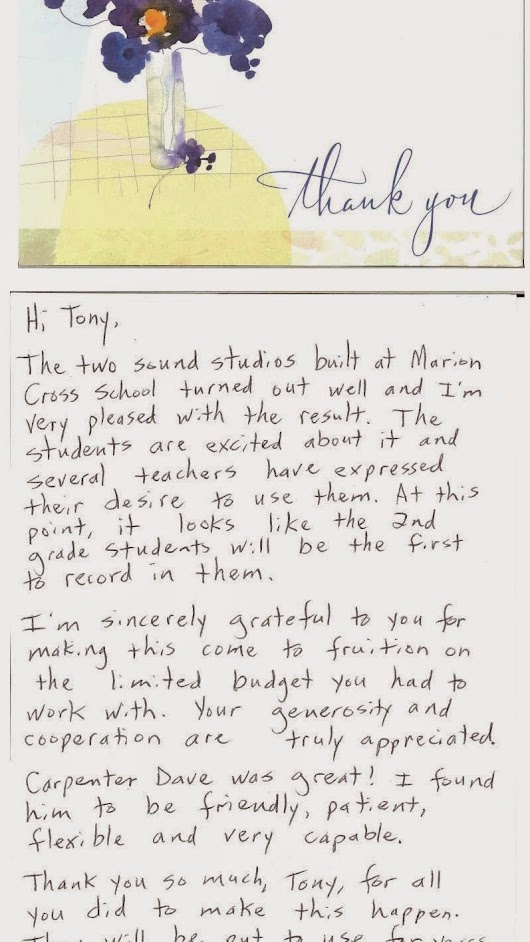 thank you
Hi Tony,
The two sound studios built at Marion
Cross School turned out well and I'm
very pleased with the result. The
students are excited about it and
several teachers have expressed
their desire to use them. At this
point, it looks like the 2nd
grade students will be the first
to record in them.
I'm sincerely grateful to you for
making this come to fruition on
the limited budget you had to
work with. Your generosity and
cooperation are truly appreciated.
Carpenter Dave was great! I found
him to be friendly, patient,
flexible and very capable.
Thank you so much, Tony, for all
you did to make this happen.
They will be put to use for years